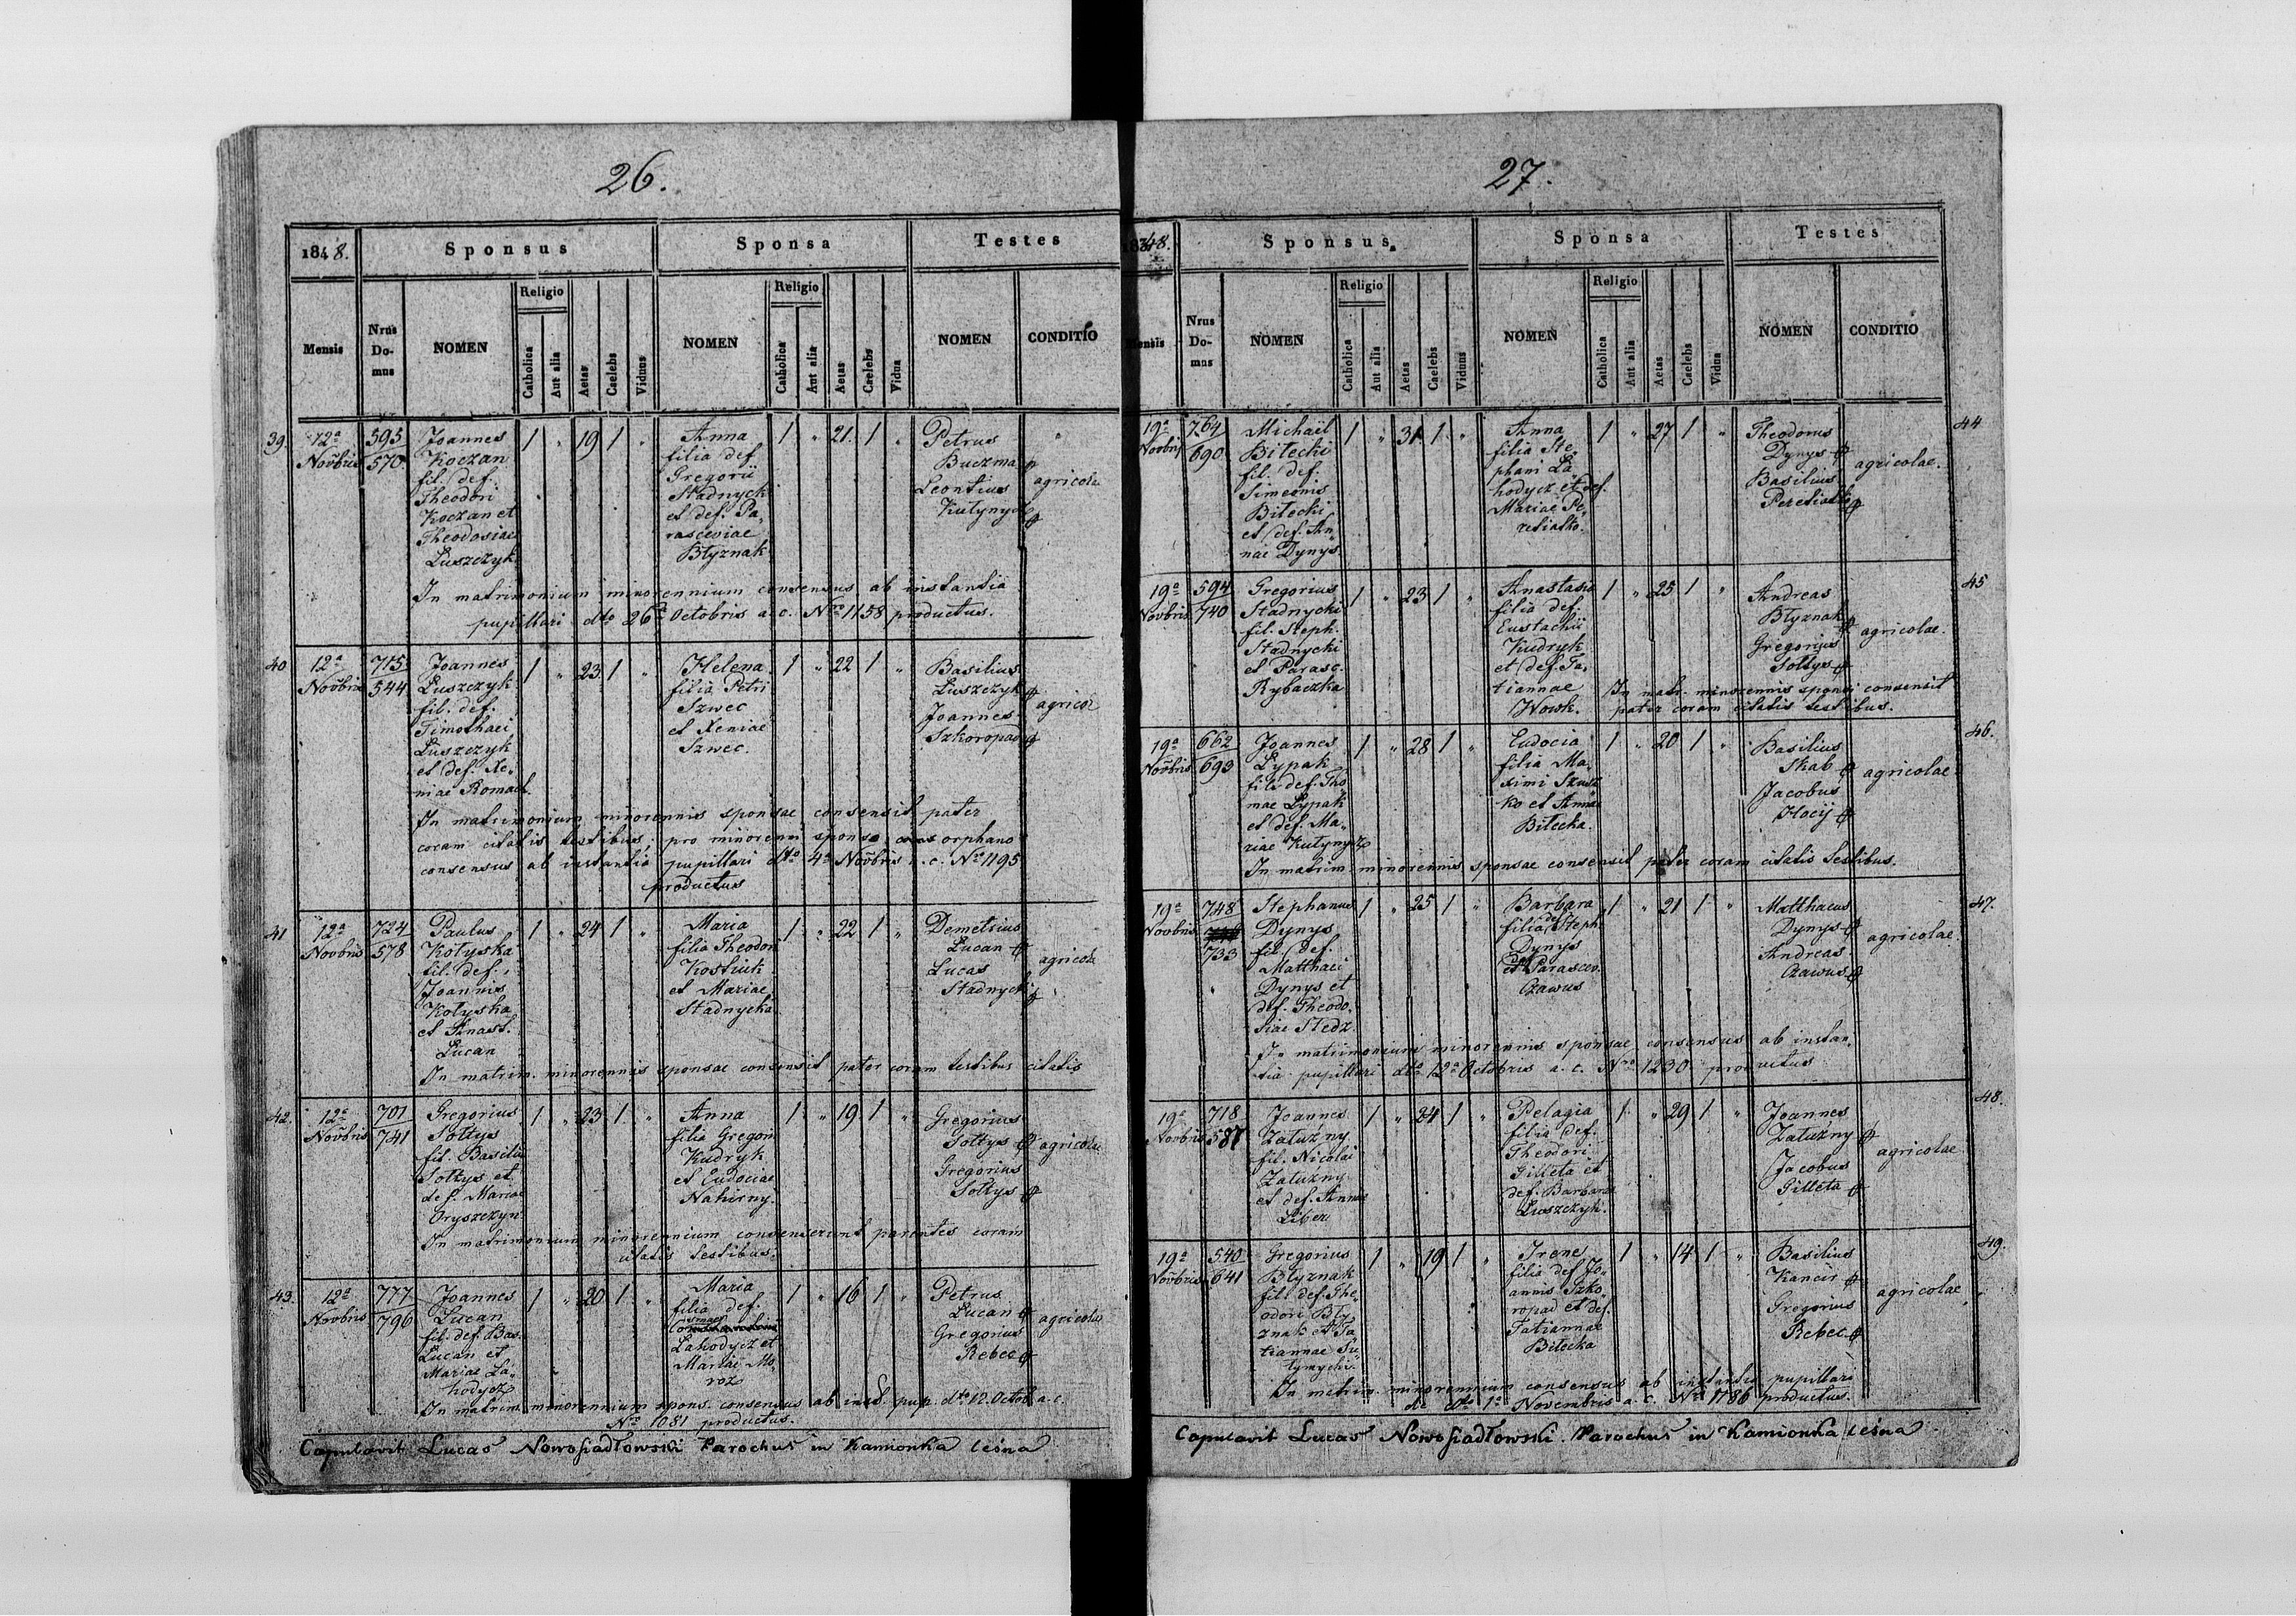 26.
1848.
Sponsus
Sponsa
Testes
Mensis
Nrus Do-mus
NOMEN
Religio
Catholica
Aut alia
Aetas
Caelebs
Viduus
NOMEN
Religio
Catholica
Aut alia
Aetas
Caelebs
Vidua
NOMEN
CONDITIO
39. 12a 595 Joannes 1 " 19 1 " Anna 1 " 21. 1 " Petrus "
Novbris 570 Koczan filia def. Buczma
fil. def. Gregorii Leontius agricola
Theodori Stadnyck Kutynycz
Koczan et et def. Pa„
Theodosiae rasceviae
Luszczyk Błyznak
In matrimonium minorennium consensus ab instantia
pupillari dto 26a Octobris a. c. Nro 1158 productus.
40 12a 715 Joannes 1 " 23. 1 " Helena 1 " 22 1 " Basilius
Novbris 544 Luszczyk filia Petri Luszczyk
fil. def. Szwec Joannes agricol
Timothaei et Xeniae Szkoropad
Luszczyk Szwec.
et def. Xe„
niae Romach.
In matrimonium minorennis sponsae consensit pater
coram citatis testibus; pro minorenni sponso orphano
consensus ab instantia pupillari dto 4a Novbris a. c. Nro 1195
productus
41 12a 724 Paulus 1 " 24 1 " Maria 1 " 22 1 " Demetrius
Novbris 578 Kotyska filia Theodori Lucan
fil. def. Kostiuk Lucas agricola
Joannis et Mariae Stadnycki
Kotyska Stadnycka
et Anast.
Lucan
In matrim. minorennis sponsae consensit pater coram testibus citatis
42. 12a 701 Gregorius 1 " 23 1 " Anna 1 " 19 1 " Gregorius
Novbris 741 Sołtys filia Gregorii Sołtys agricolae
fil. Basilii Kudryk Gregorius
Sołtys et et Eudociae Sołtys
def. Mariae Nahirny.
Oryszczyn
In matrimonium minorennium consenserunt parentes coram
citatis testibus.
43. 12a 777 Joannes 1 " 20 1 " Maria 1 " 16 1 " Petrus
Novbris 796 Lucan filia def. Lucan agricolae
fil. def. Bas. Gregorius
Lucan et Lahodycz et Rebec
Mariae La„ Mariae Mo„
hodycz roz
In matrim. minorennium spons. consensus ab inst. pup. dto 12. Octob. a. c.
Nro 1081 productus.
Copulavit Lucas Nowosiadłowski Parochus in Kamionka leśna
27.
1848.
Sponsus.
Sponsa
Testes
Mensis
Nrus Do-mus
NOMEN
Religio
Catholica
Aut alia
Aetas
Caelebs
Viduus
NOMEN
Religio
Catholica
Aut alia
Aetas
Caelebs
Vidua
NOMEN
CONDITIO
19a 764 Michaël 1 " 31 1 " Anna 1 " 27 1 " Theodorus 44
Novbris 690 Biłecki filia Ste„ Dynys agricolae.
fil. def. phani La„ Basilius
Simeonis hodycz et def. Peretiatko
Biłecki Mariae Pe„
et def. An„ retiatko.
nae Dynys
19a 594 Gregorius 1 " 23 1 " Anastasia 1 " 25 1 " Andreas 45
Novbris 740 Stadnycki filia def. Błyznak
fil. Steph. Eustachii Gregorius agricolae.
Stadnycki Kudryk Sołtys
et Parasc. et def. Ta„
Rybaczka tiannae In matr. minorennis sponsi consensit
Wowk. pater coram citatis testibus.
19a 662 Joannes 1 " 28 1 " Eudocia 1 " 20 1 " Basilius 46.
Novbris 693 Lypak filia Ma„ Skab agricolae
fil. def. Tho„ ximi Jacobus
mae Lypak ko et Annae Hocij
et def. Ma„ Biłecka.
riae Kutynycz
In matrim. minorennis sponsae consensit pater coram citatis testibus.
19a 748 Stephanus 1 " 25 1 " Barbara 1 " 21 1 " Matthaeus 47.
Novbris 733 Dynys filia def. Steph. Dynys agricolae.
fil. def. Dynys Andreas
Matthaei et def. Parascev. Czawus
Dynys et Czawus
def. Theodo„
siae Stedz
In matrimonium minorennis sponsae consensus ab instan„
tia pupillari dto 12a Octobris a. c. Nro 1230 productus
19a 718 Joannes 1 " 24 1 " Pelagia 1 " 29 1 " Joannes 48.
Novbris 587 Załużny filia def. Załużny
fil. Nicolai Theodori Jacobus agricolae
Załużny Gilleta et Gilleta
et def. Annae def. Barbarae
Liber Luszczyk.
19a 540 Gregorius 1 " 19 1 " Irene 1 " 14 1 " Basilius 49.
Novbris 641 Błyznak filia def. Jo„ Kancir agricolae
fil. def. The„ annis Szko„ Gregorius
odori Bły„ ropad et def. Rebec
znak et Ta„ Tatiannae
tiannae Biłecka
In matrim. minorennium consensus ab instantia pupillari
de dto 1a Novembris a. c. Nro 1186 productus.
Copulavit Lucas Nowosiadłowski. Parochus in Kamionka leśna